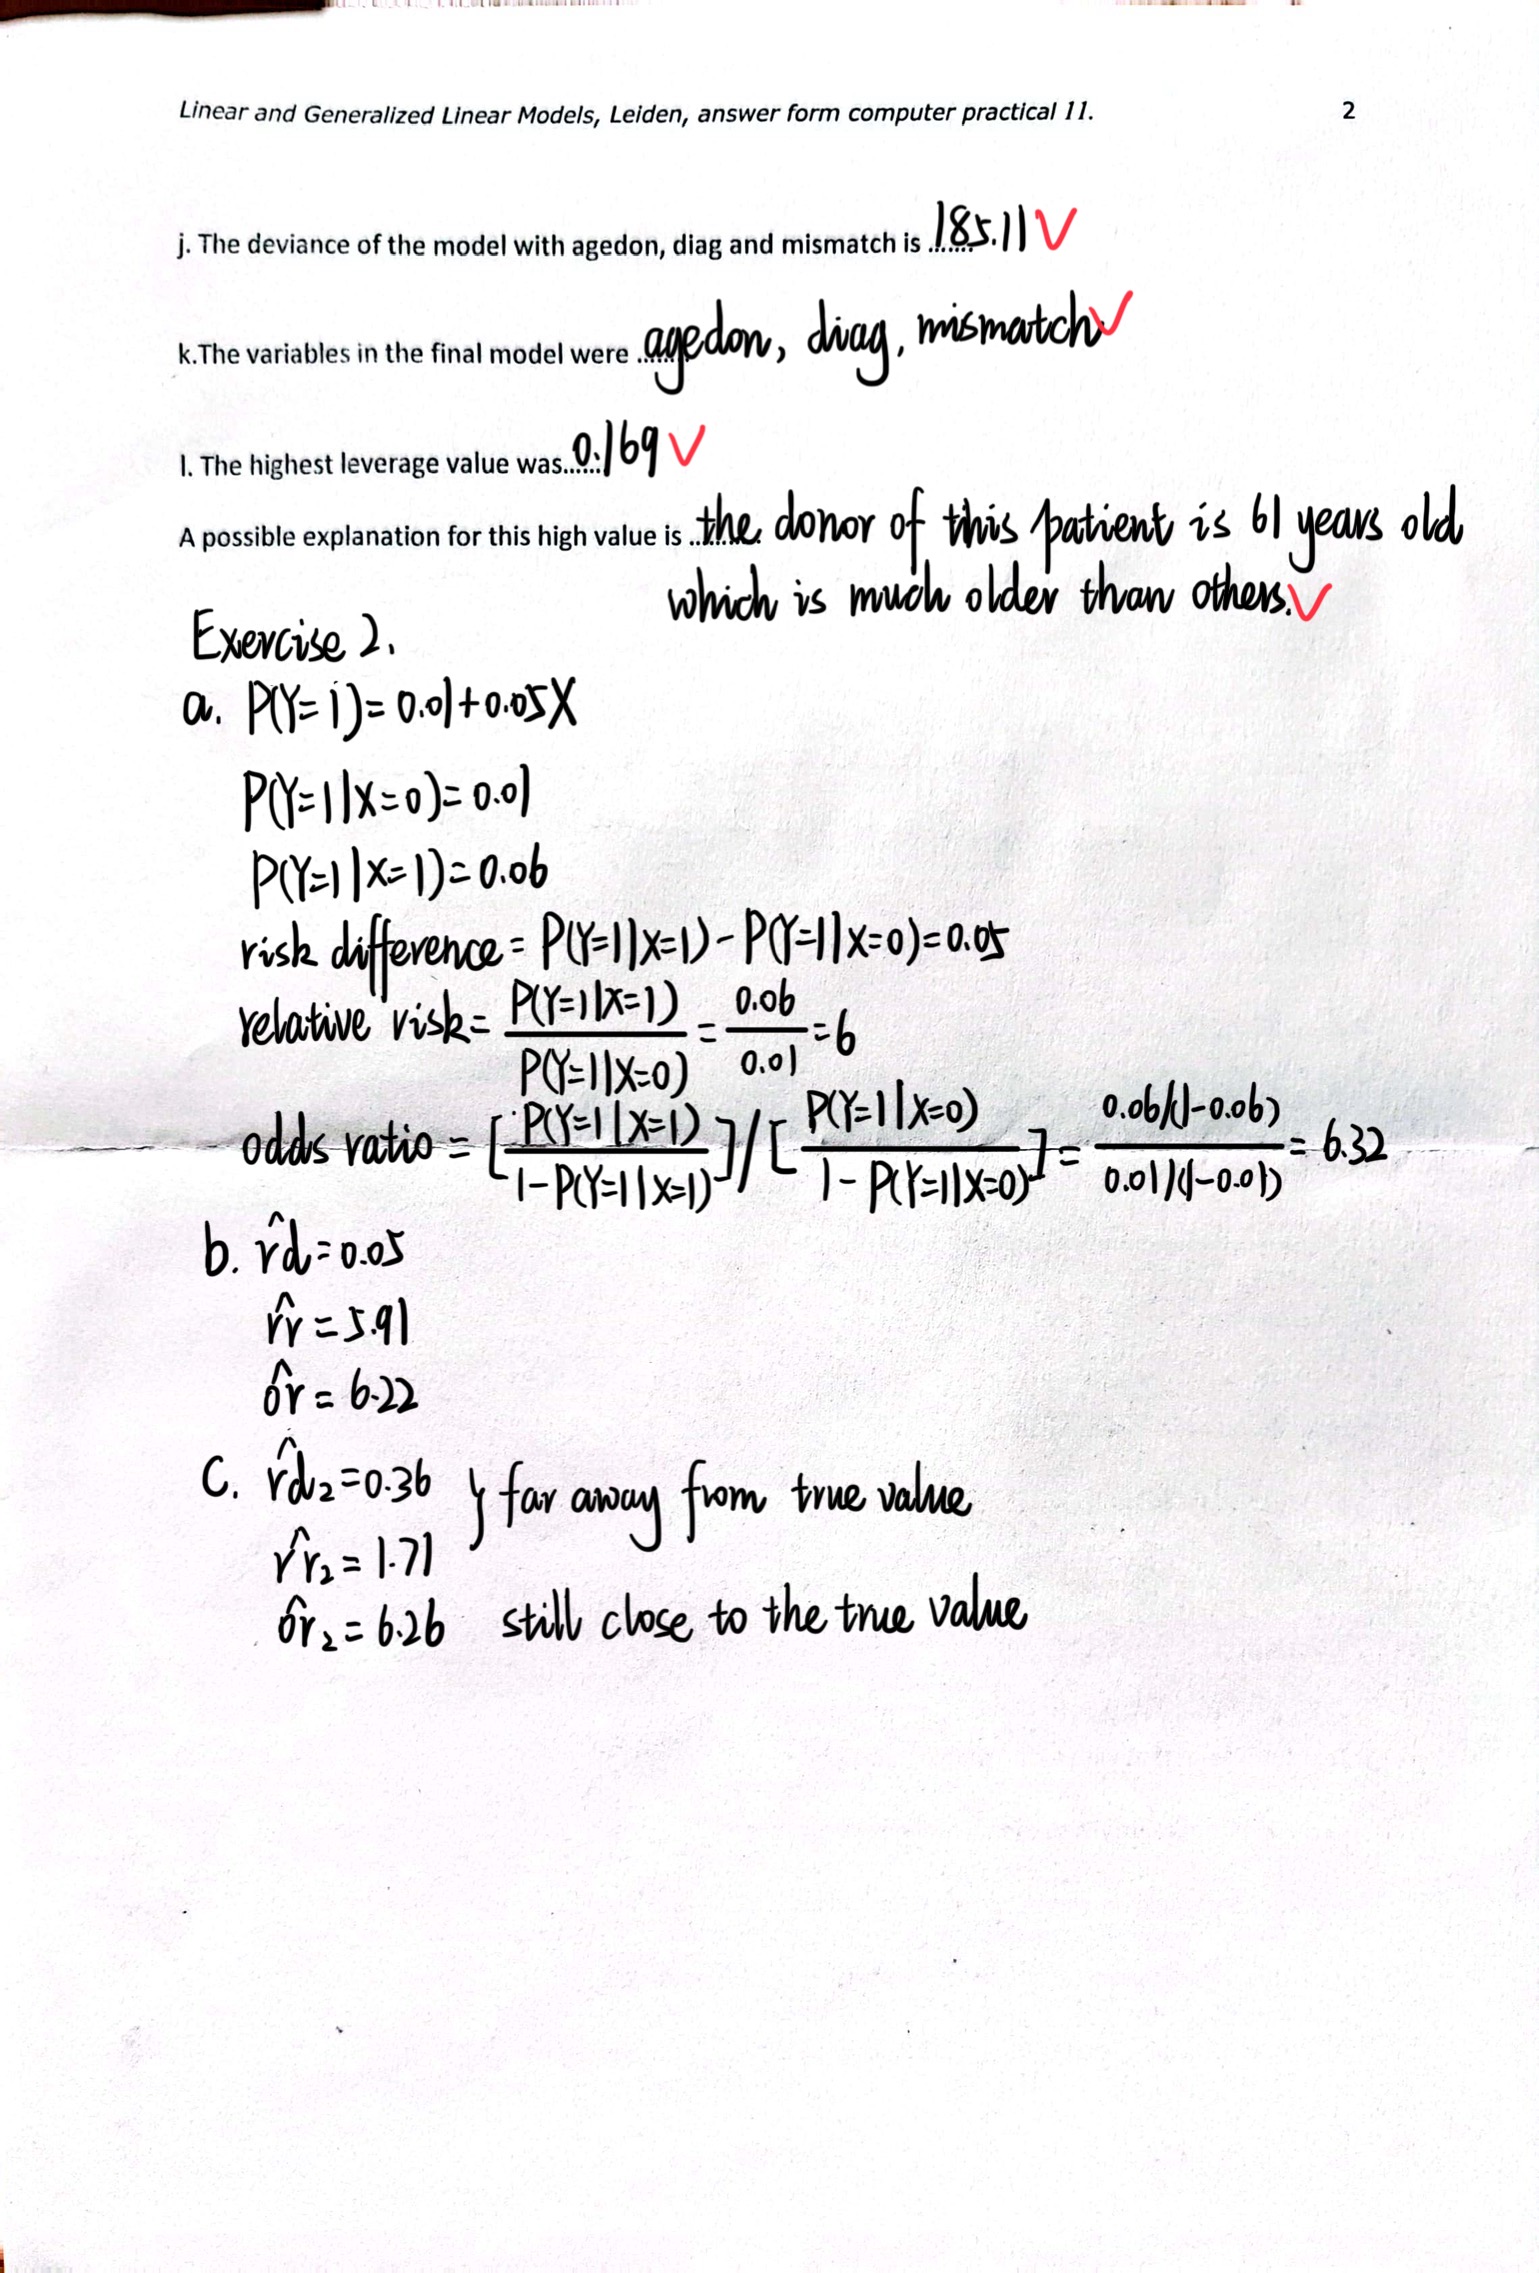 Linear and Generalized Linear Models, Leiden, answer form computer practical 11. 2
j. The deviance of the model with agedon, diag and mismatch is ........185.11 V
k.The variables in the final model were ........agedon, diag, mismatch V
l. The highest leverage value was........0.169 V
A possible explanation for this high value is ..........the donor of this patient is 61 years old
which is much older than others. V
Exercise 2.
a. P(Y=1)=0.01+0.05X
P(Y=1|X=0)=0.01
P(Y=1|X=1)=0.06
risk difference = P(Y=1|X=1)-P(Y=1|X=0)=0.05
relative risk= P(Y=1|X=1) / P(Y=1|X=0) = 0.06 / 0.01 =6
odds ratio = [P(Y=1|X=1) / 1-P(Y=1|X=1)]/[P(Y=1|X=0) / 1-P(Y=1|X=0)]= 0.06/(1-0.06) / 0.01/(1-0.01) = 6.32
b. r̂d=0.05
r̂r=5.91
ôr=6.22
C. r̂d₂=0.36 } far away from true value
r̂r₂=1.71
ôr₂=6.26 still close to the true value